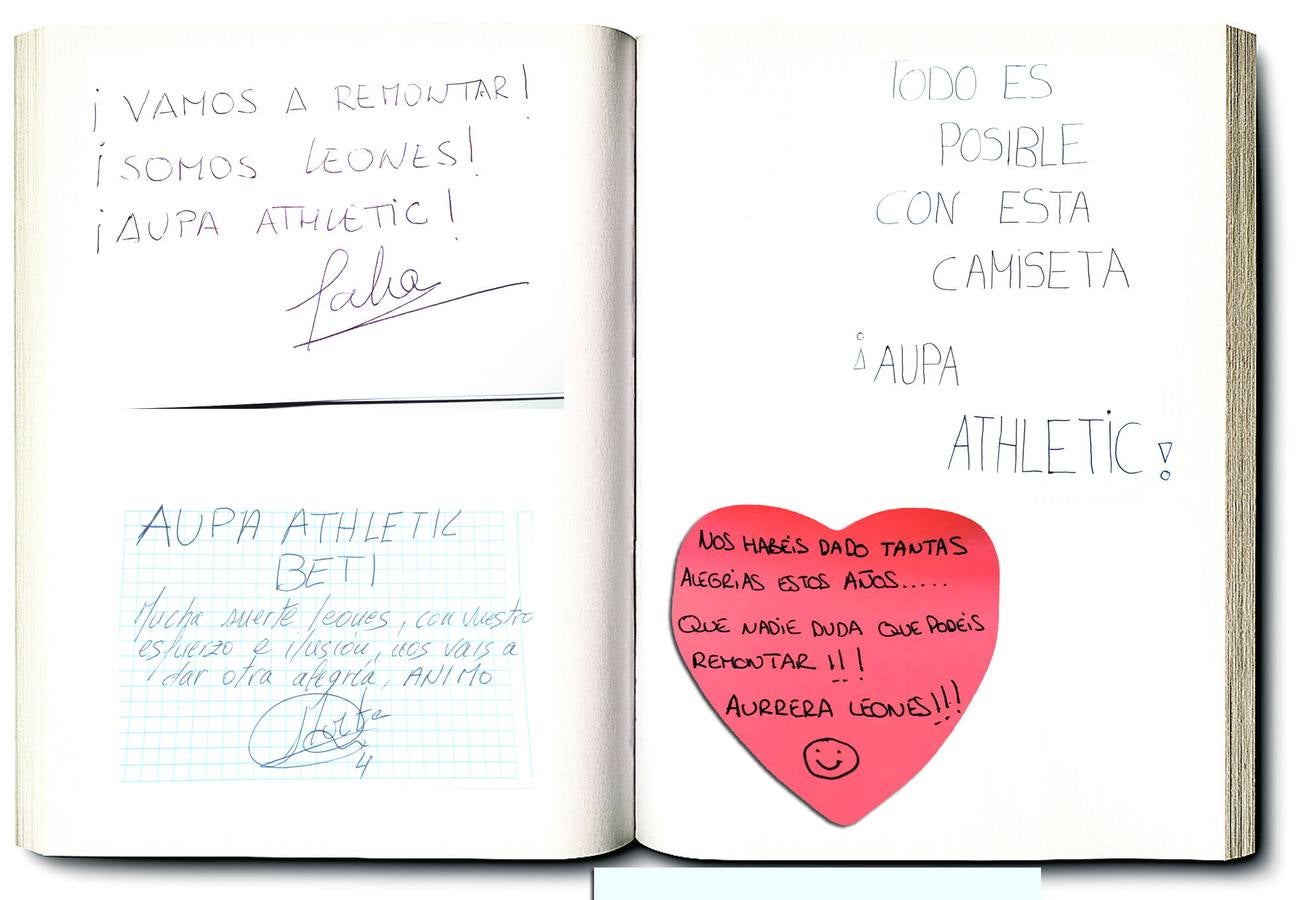 ¡VAMOS A REMONTAR!
¡SOMOS LEONES!
¡AUPA ATHLETIC!
AUPA ATHLETIC
BETI
Mucha suerte leones, con vuestro
esfuerzo e ilusión, nos vais a
dar otra alegría, ANIMO
4
TODO ES
POSIBLE
CON ESTA
CAMISETA
¡AUPA
ATHLETIC!
NOS HABÉIS DADO TANTAS
ALEGRIAS ESTOS AÑOS.....
QUE NADIE DUDA QUE PODÉIS
REMONTAR !!!
AURRERA LEONES!!!